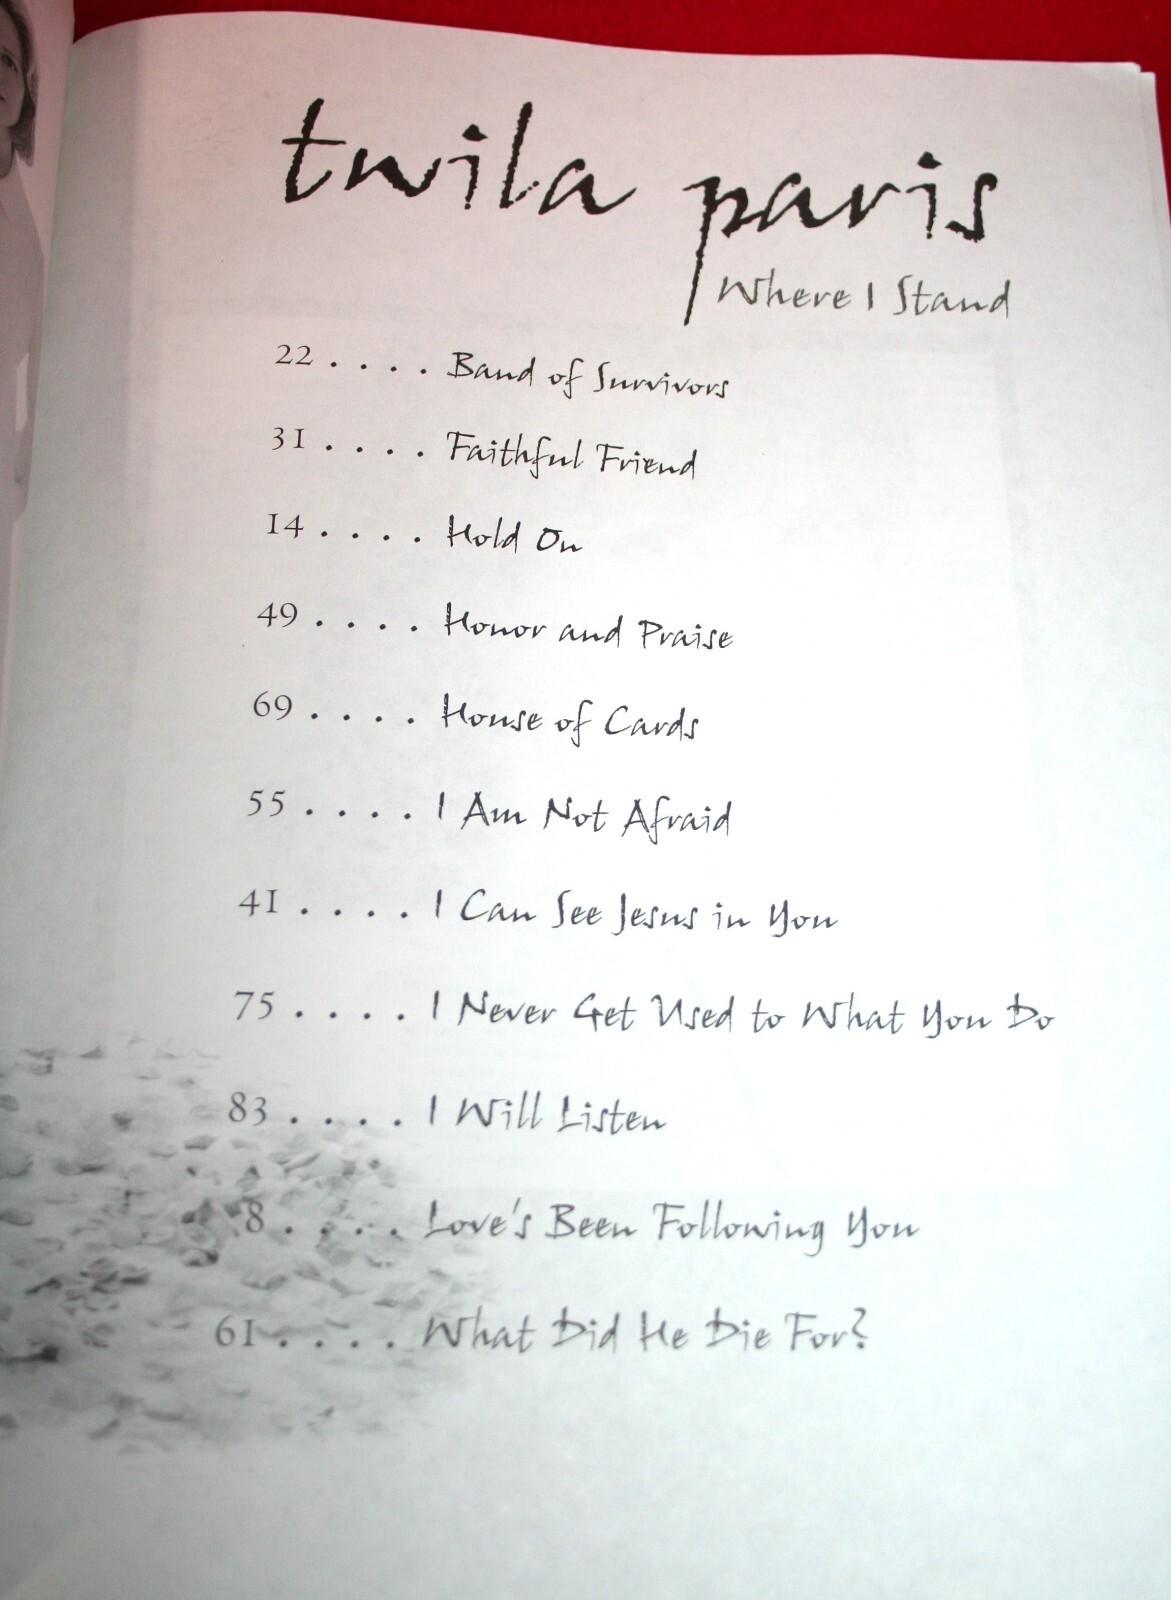 twila paris
Where I Stand
22 . . . . Band of Survivors
31 . . . . Faithful Friend
14 . . . . Hold On
49 . . . . Honor and Praise
69 . . . . House of Cards
55 . . . . I Am Not Afraid
41 . . . . I Can See Jesus in You
75 . . . . I Never Get Used to What You Do
83 . . . . I Will Listen
8 . . . . Love's Been Following You
61 . . . . What Did He Die For?